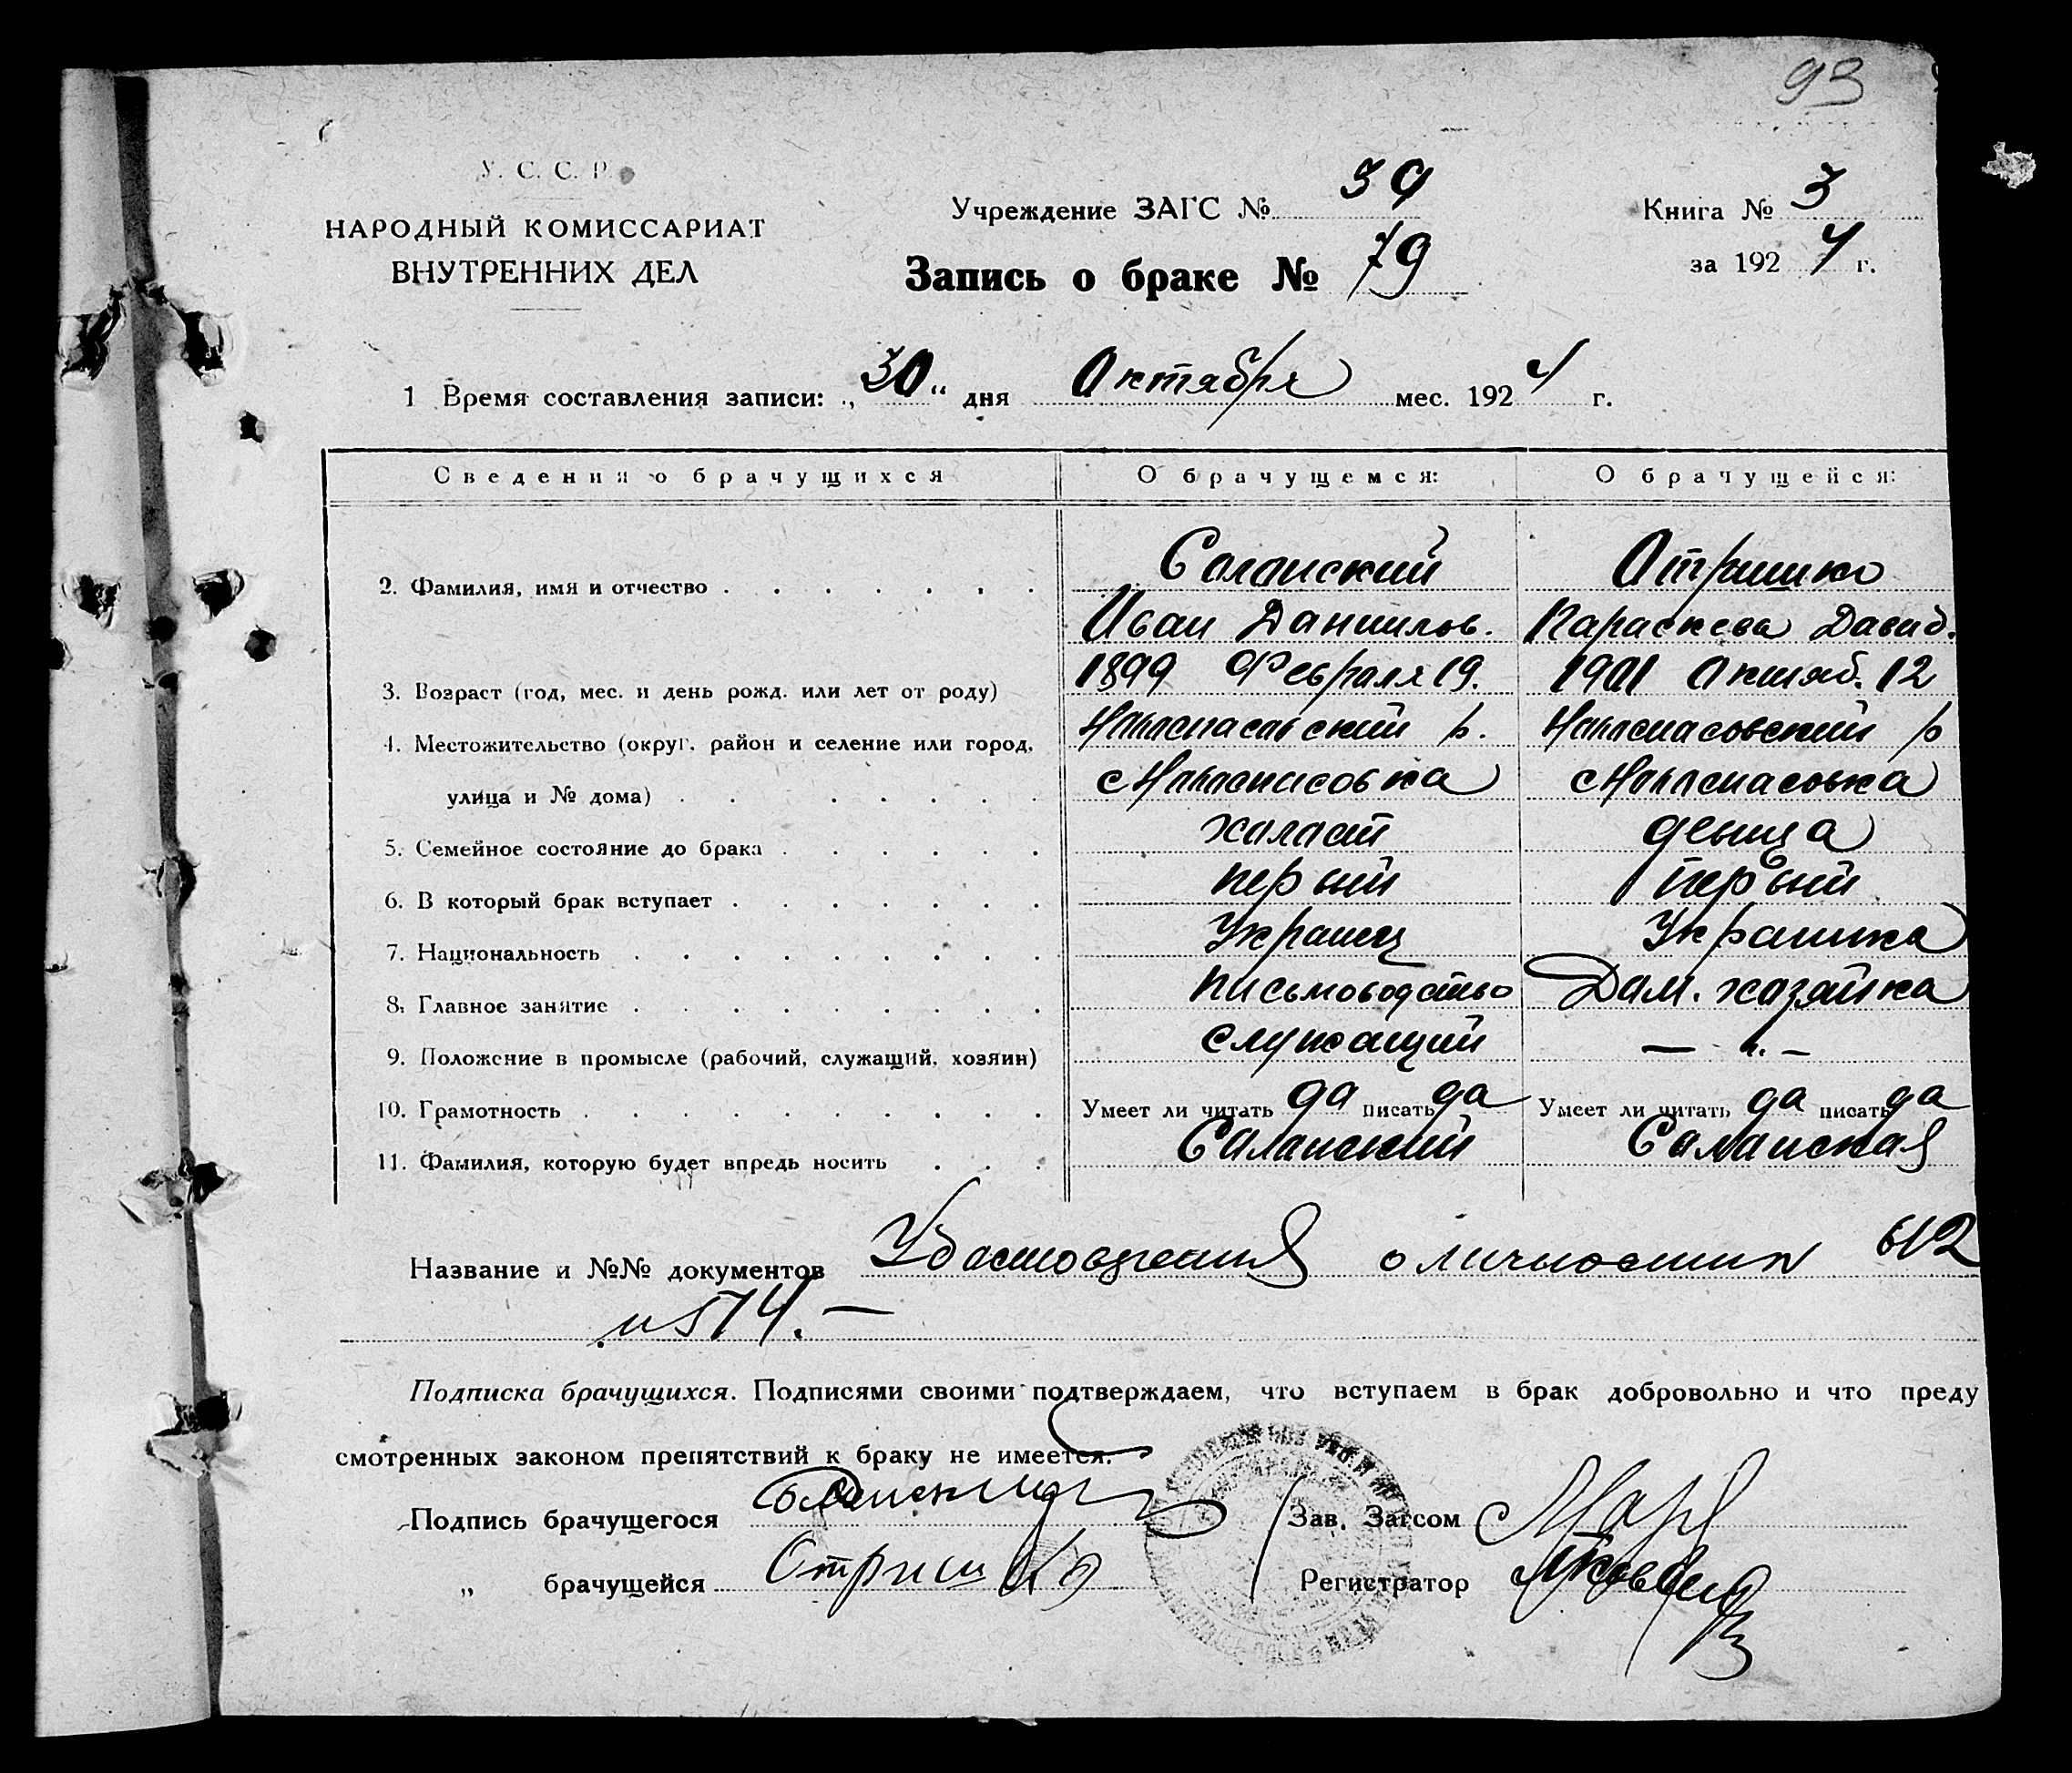 93
У. С. С. Р.
НАРОДНЫЙ КОМИССАРИАТ
ВНУТРЕННИХ ДЕЛ
Учреждение ЗАГС № 39
Запись о браке № 79
Книга № 3
за 1924 г.
1 Время составления записи: „30“ дня Октября мес. 1924 г.
Сведения о брачущихся О брачущемся: О брачущейся:
2. Фамилия, имя и отчество Саланский Отришко
Иван Данилов. Параскева Давид.
3. Возраст (год, мес. и день рожд. или лет от роду) 1899 Февраля 19. 1901 Октяб. 12
4. Местожительство (округ, район и селение или город, Новоспасовский р. Новоспасовский р
улица и № дома) с Новоспасовка с Новоспасовка
5. Семейное состояние до брака холост девица
6. В который брак вступает первый первый
7. Национальность Украинец Украинка
8. Главное занятие письмоводство Дом. хозяйка
9. Положение в промысле (рабочий, служащий, хозяин) служащий — „ —
10. Грамотность Умеет ли читать да писать да Умеет ли читать да писать да
11. Фамилия, которую будет впредь носить Саланский Саланская
Название и №№ документов Удостоверения о личности 612
и 574. —
Подписка брачущихся. Подписями своими подтверждаем, что вступаем в брак добровольно и что преду
смотренных законом препятствий к браку не имеется.
Подпись брачущегося Саланский Зав. Загсом
„ брачущейся Отришко Регистратор